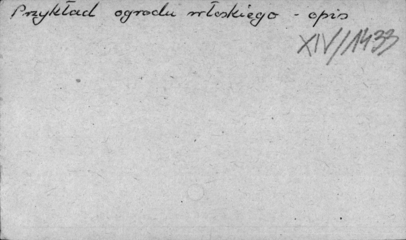 Przykład ogrodu włoskiego - opis
XIV/1433